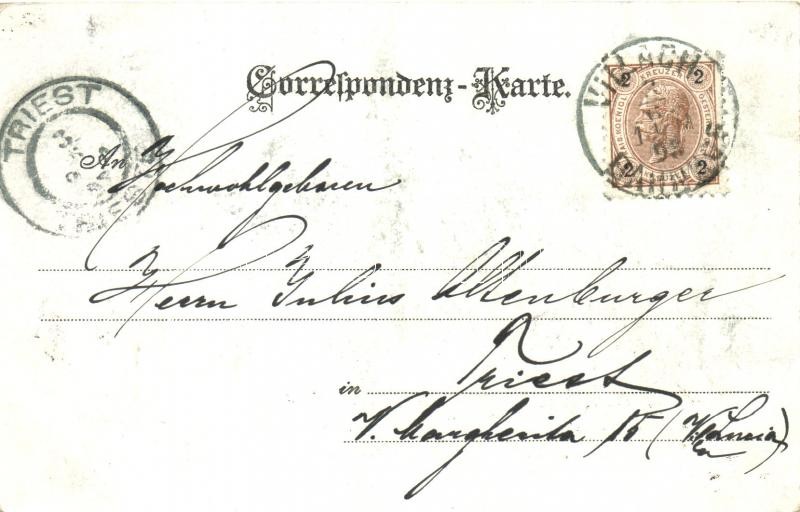 Correspondenz-Karte.
TRIEST
VILLACH
2 KREUZER 2
2 2
An Hochwohlgeboren
Herrn Julius Altenburger
in Triest
V. Margherita 15 (V.